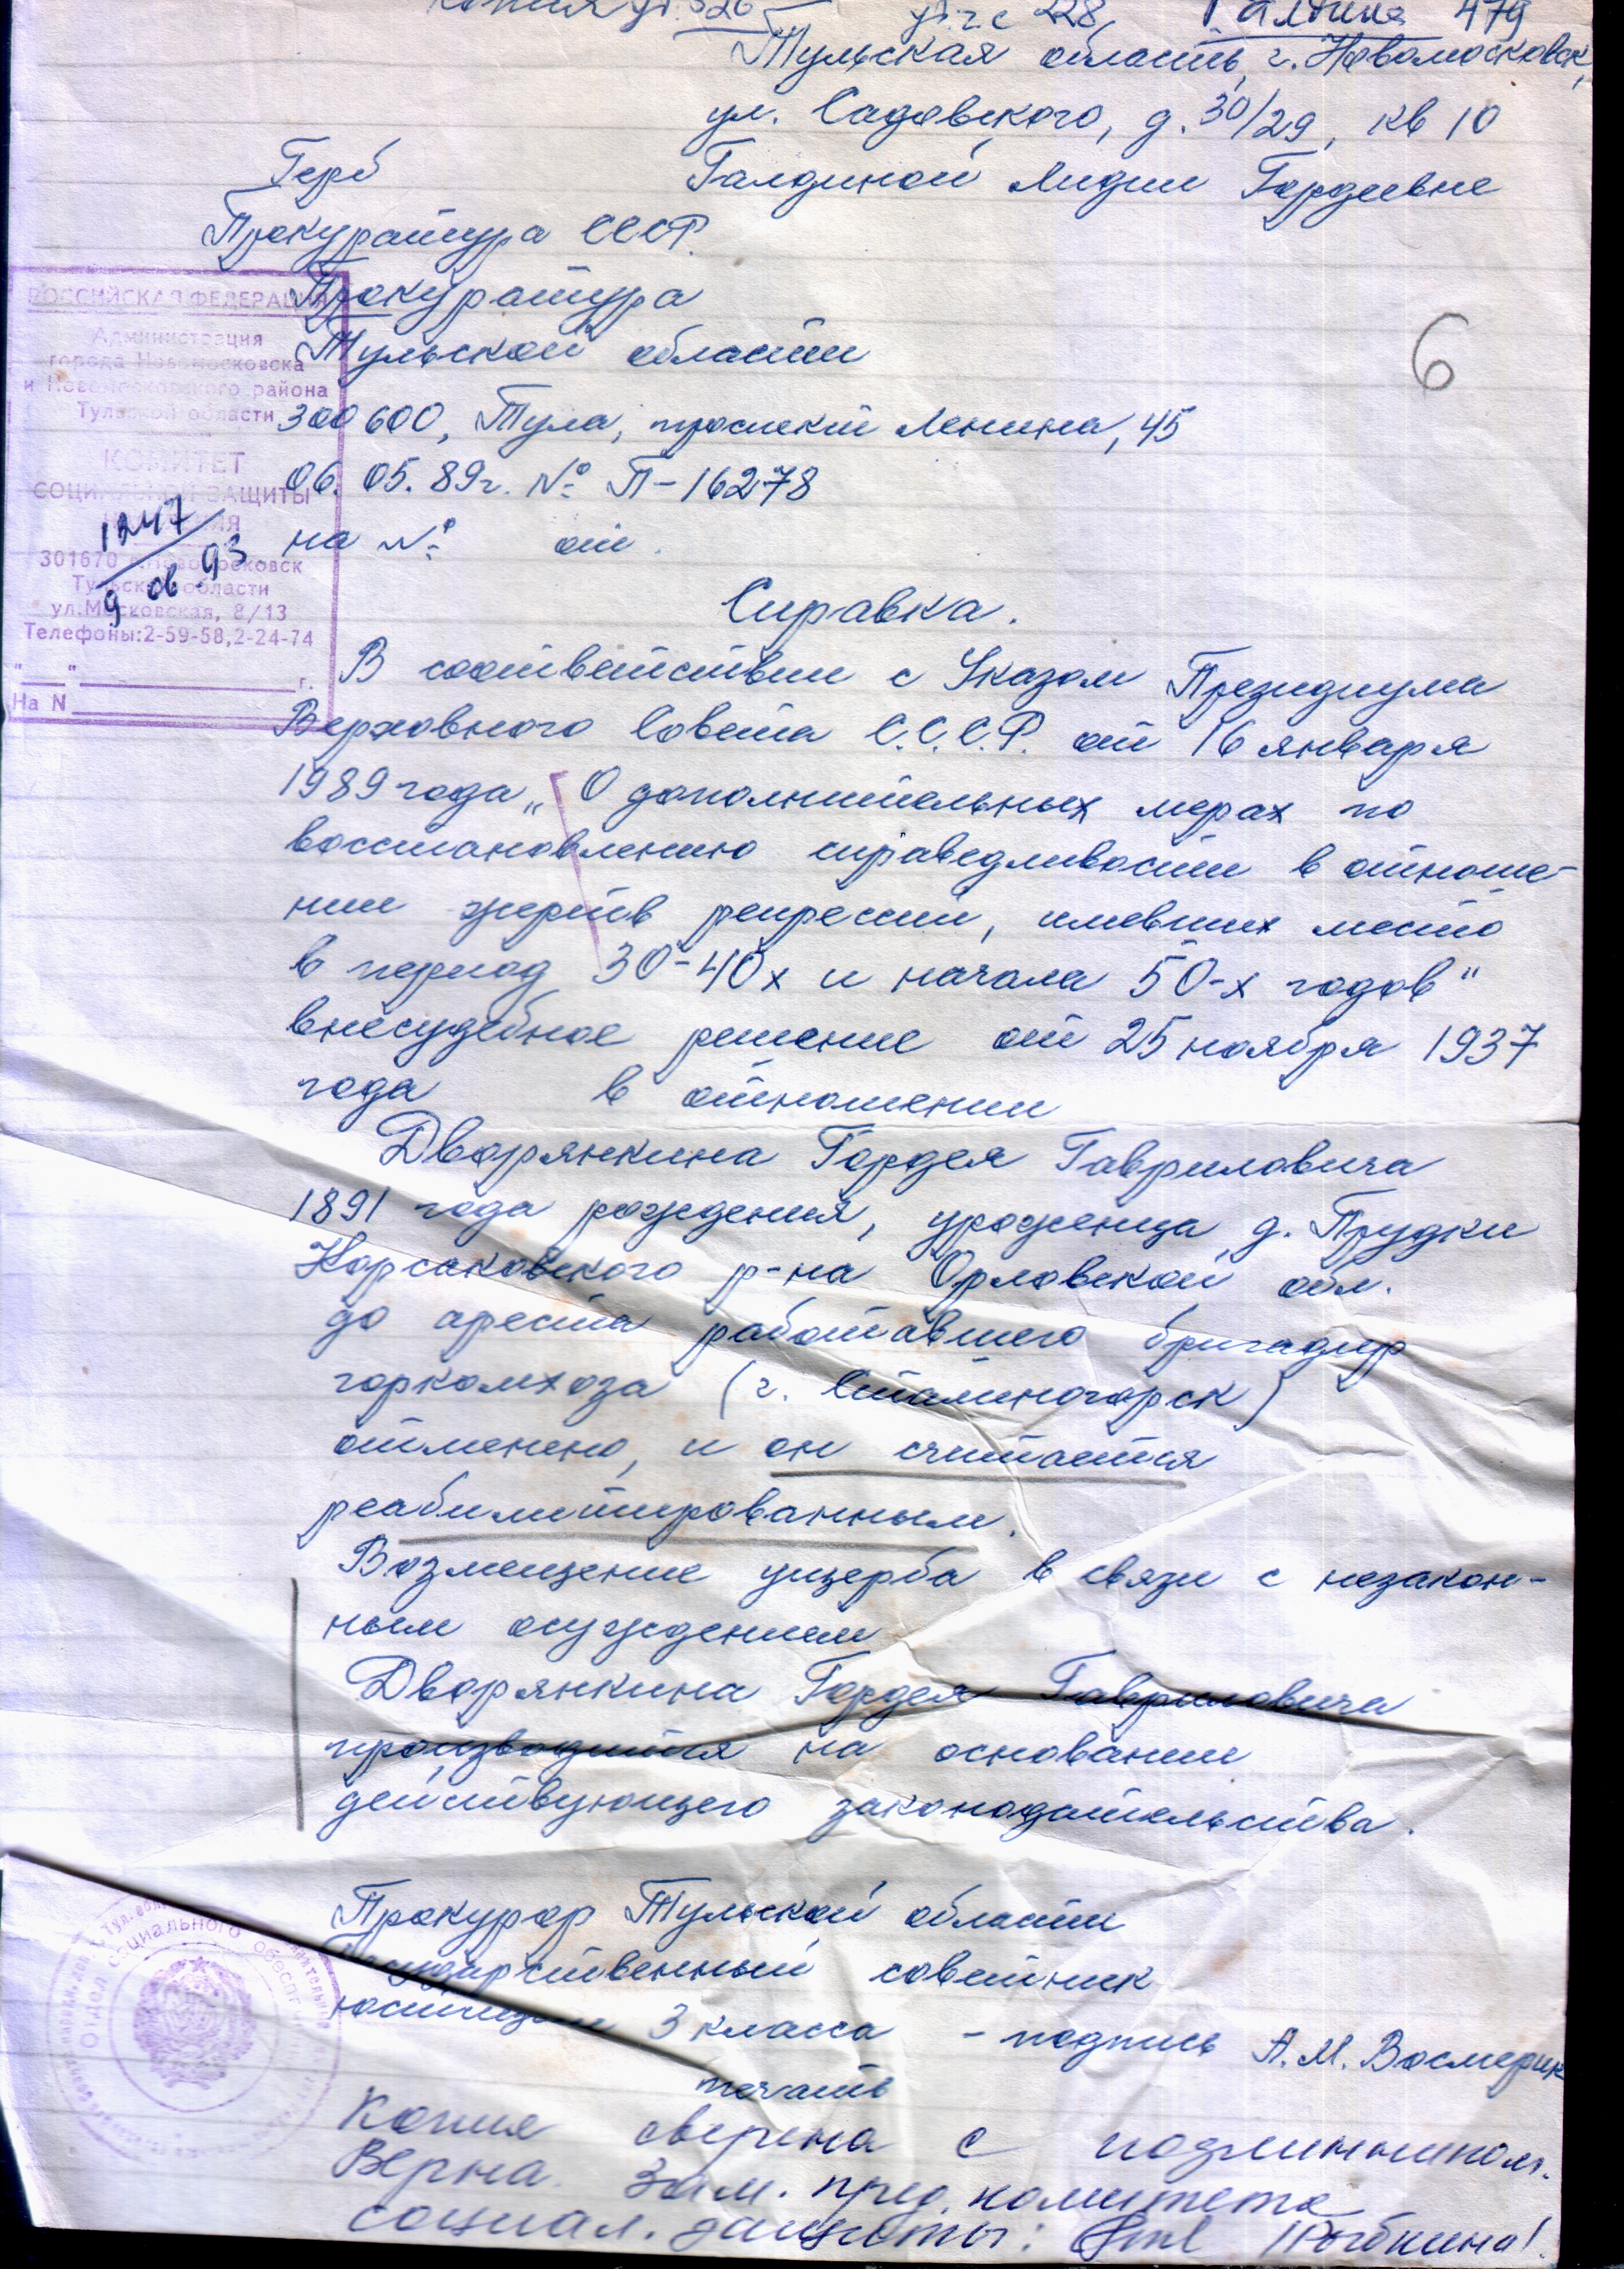 копия у.г. 526 у.г.с 228, Галдина 479
Тульская область, г. Новомосковск,
ул. Садовского, д. 30/29, кв 10
Герб Галдиной Лидии Гордеевне
Прокуратура СССР.
Прокуратура
Тульской области
6
300600, Тула, проспект Ленина, 45
06. 05. 89г. № П-16278
на № от.
РОССИЙСКАЯ ФЕДЕРАЦИЯ
Администрация
города Новомосковска
и Новомосковского района
Тульской области
КОМИТЕТ
СОЦИАЛЬНОЙ ЗАЩИТЫ
НАСЕЛЕНИЯ
1247
9 06 93
301670 г.Новомосковск
Тульской области
ул.Московская, 8/13
Телефоны:2-59-58,2-24-74
"___"____________г.
На N
Справка.
В соответствии с Указом Президиума
Верховного Совета С.С.С.Р. от 16 января
1989 года „О дополнительных мерах по
восстановлению справедливости в отноше-
нии жертв репрессии, имевших место
в период 30-40х и начала 50-х годов"
внесудебное решение от 25 ноября 1937
года в отношении
Дворянкина Гордея Гавриловича
1891 года рождения, уроженца д. Прудки
Корсаковского р-на Орловской обл.
до ареста работавшего бригадир
горкомхоза (г. Сталиногорск)
отменено, и он считается
реабилитированным.
Возмещение ущерба в связи с незакон-
ным осуждением
Дворянкина Гордея Гавриловича
производится на основании
действующего законодательства.
Прокурор Тульской области
Государственный советник
юстиции 3 класса - подпись А.М. Восмерик
печать
Отдел социального обеспечения
Копия сверена с подлинником.
Верна. Зам. пред. комитета
социал. защиты: /Рыбкина/.